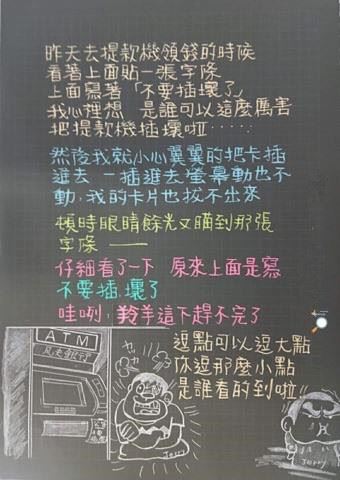 昨天去提款機領錢的時候
看著上面貼一張字條
上面寫著「不要插壞了」
我心裡想 是誰可以這麼厲害
把提款機插壞啦‥‥‥
然後我就小心翼翼的把卡插
進去 一插進去螢幕動也不
動，我的卡片也拔不出來
頓時眼睛餘光又瞄到那張
字條 ——
仔細看了一下 原來上面是寫
不要插,壞了
哇咧，羚羊這下趕不完了
逗點可以逗大點
你逗那麼小點
是誰看的到啦!!
ATM
Jerry
Jerry